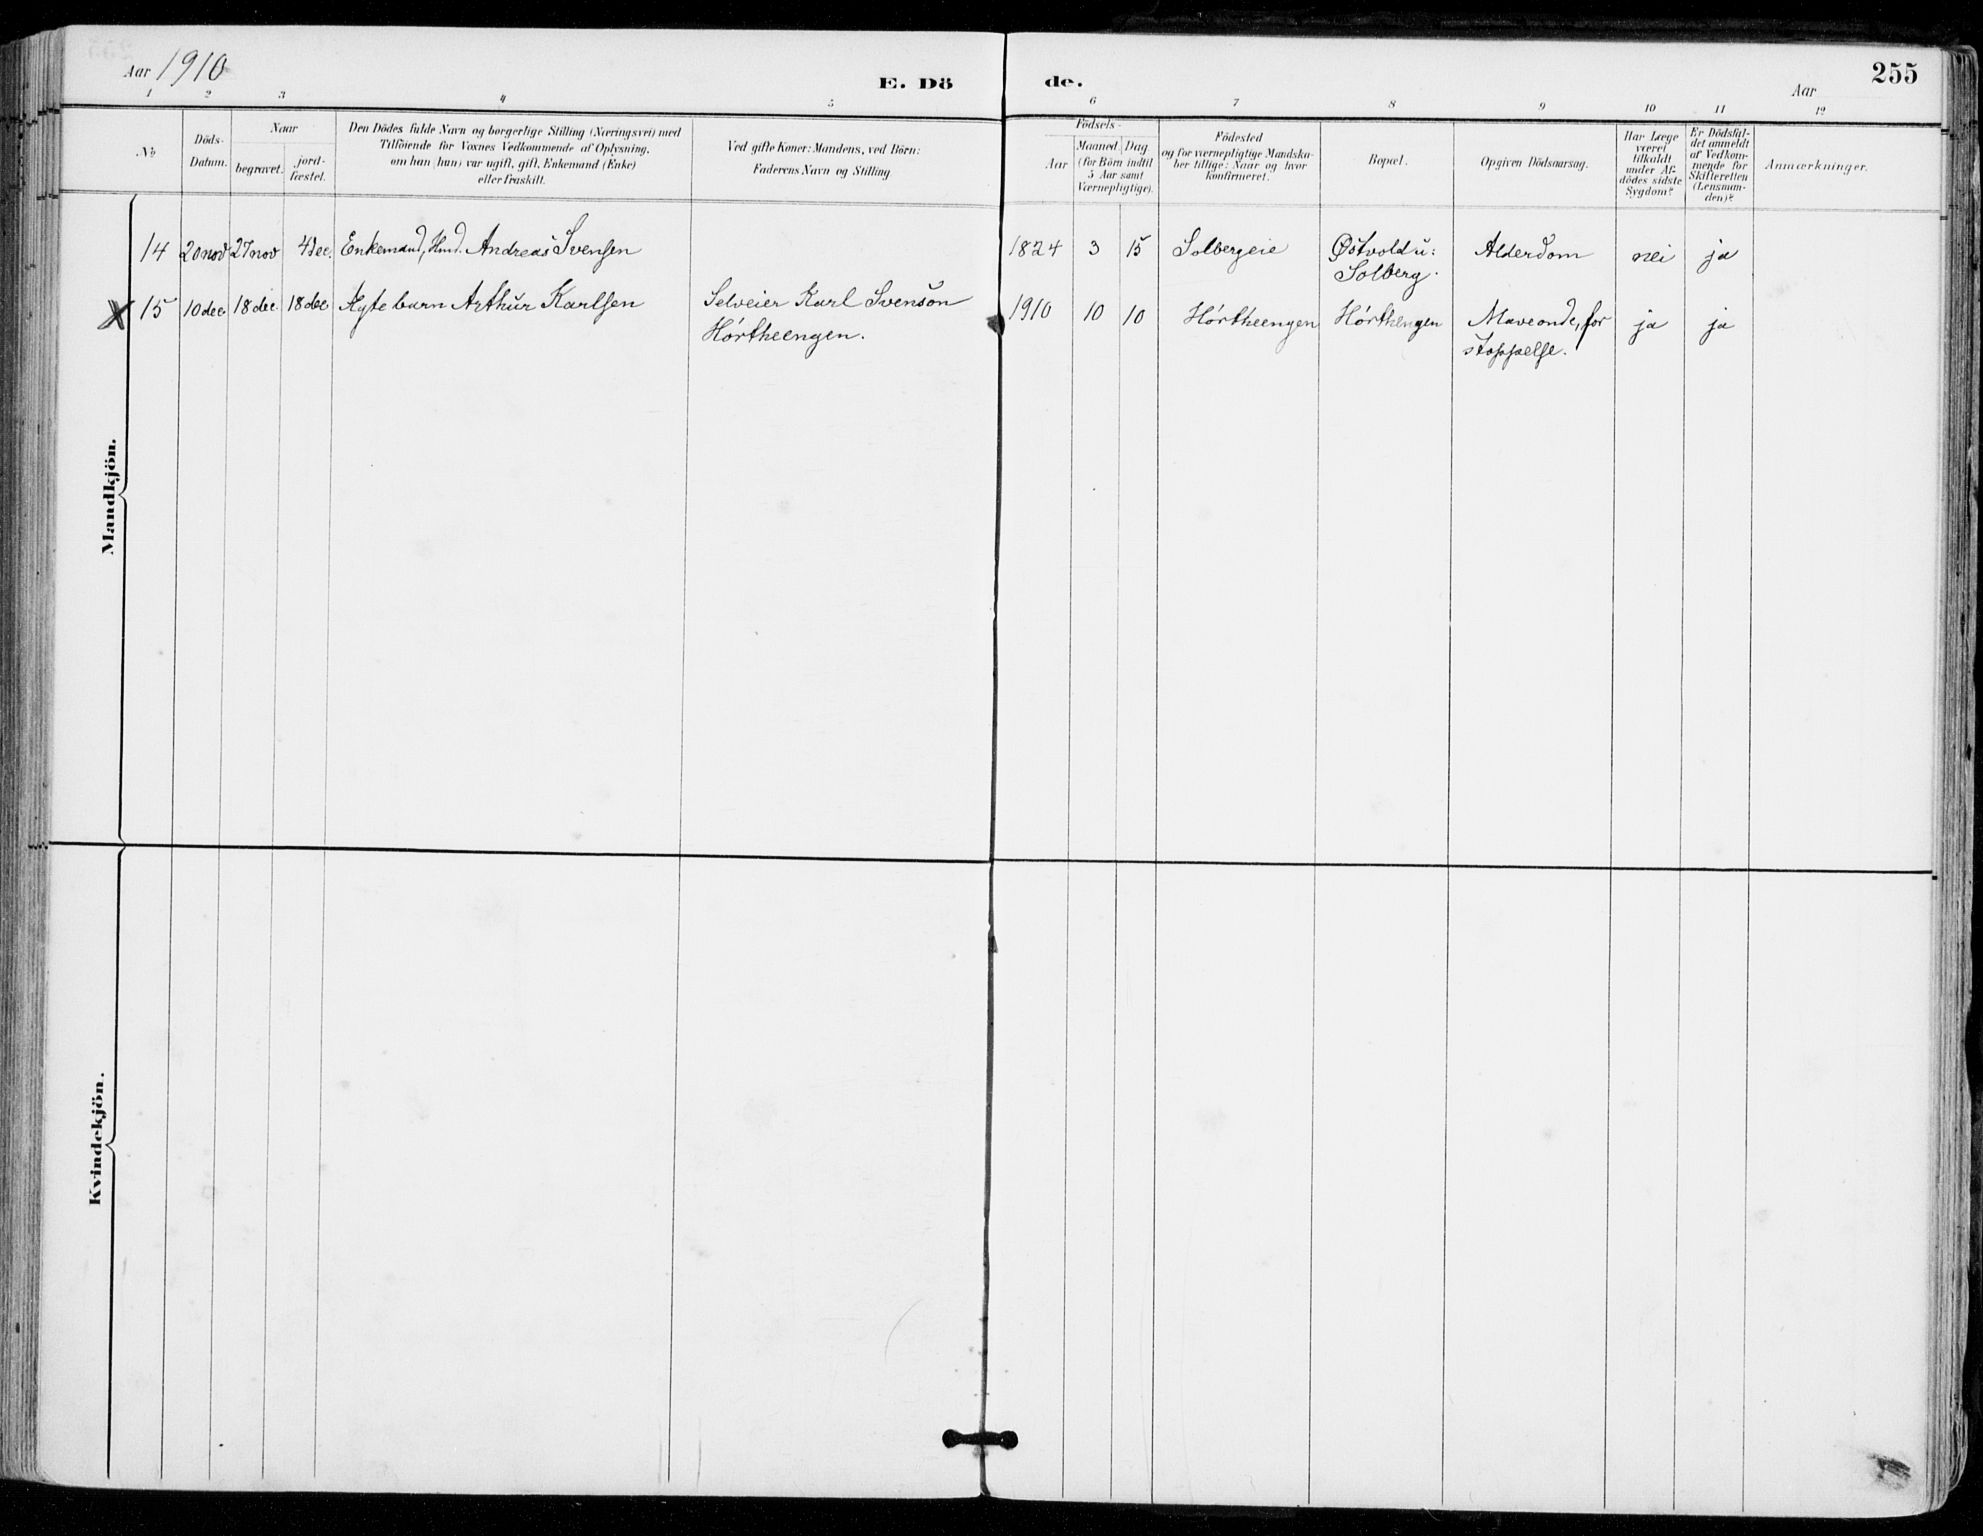 Aar 1910
E. Dö de.
Aar
255
1 2 3 4 5 6 7 8 9 10 11 12
No
Döds-
Datum.
Naar
begravet.
jord-
fæstet.
Den Dödes fulde Navn og borgerlige Stilling (Næringsvei) med
Tilföiende for Voxnes Vedkommende af Oplysning,
om han (hun) var ugift, gift, Enkemand (Enke)
eller fraskilt.
Ved gifte Koner: Mandens, ved Börn:
Faderens Navn og Stilling.
Födsels-
Aar
Maaned Dag
(for Börn indtil
5 Aar samt
Værnepligtige).
Födested
og for værnepligtige Mandska-
ber tillige: Naar og hvor
konfirmeret.
Bopæl.
Opgiven Dödsaarsag.
Har Læge
været
tilkaldt
under Af-
dödes sidste
Sygdom?
Er Dödsfal-
det anmeldt
af Vedkom-
mende for
Skifteretten
(Lensman-
den)?
Anmærkninger.
Mandkjön.
14 20 nov 27 nov 4 dec. Enkemand, Hmd. Andreas Svensen 1824 3 15 Solbergeie Østvold u: Alderdom nei ja
Solberg.
X 15 10 dec 18 dec. 18 dec Ægte barn Arthur Karlsen Selveier Karl Svenson 1910 10 10 Hørtheengen Hørthengen Maveonde, for ja ja
Hørtheengen. stoppelse.
Kvindekjön.